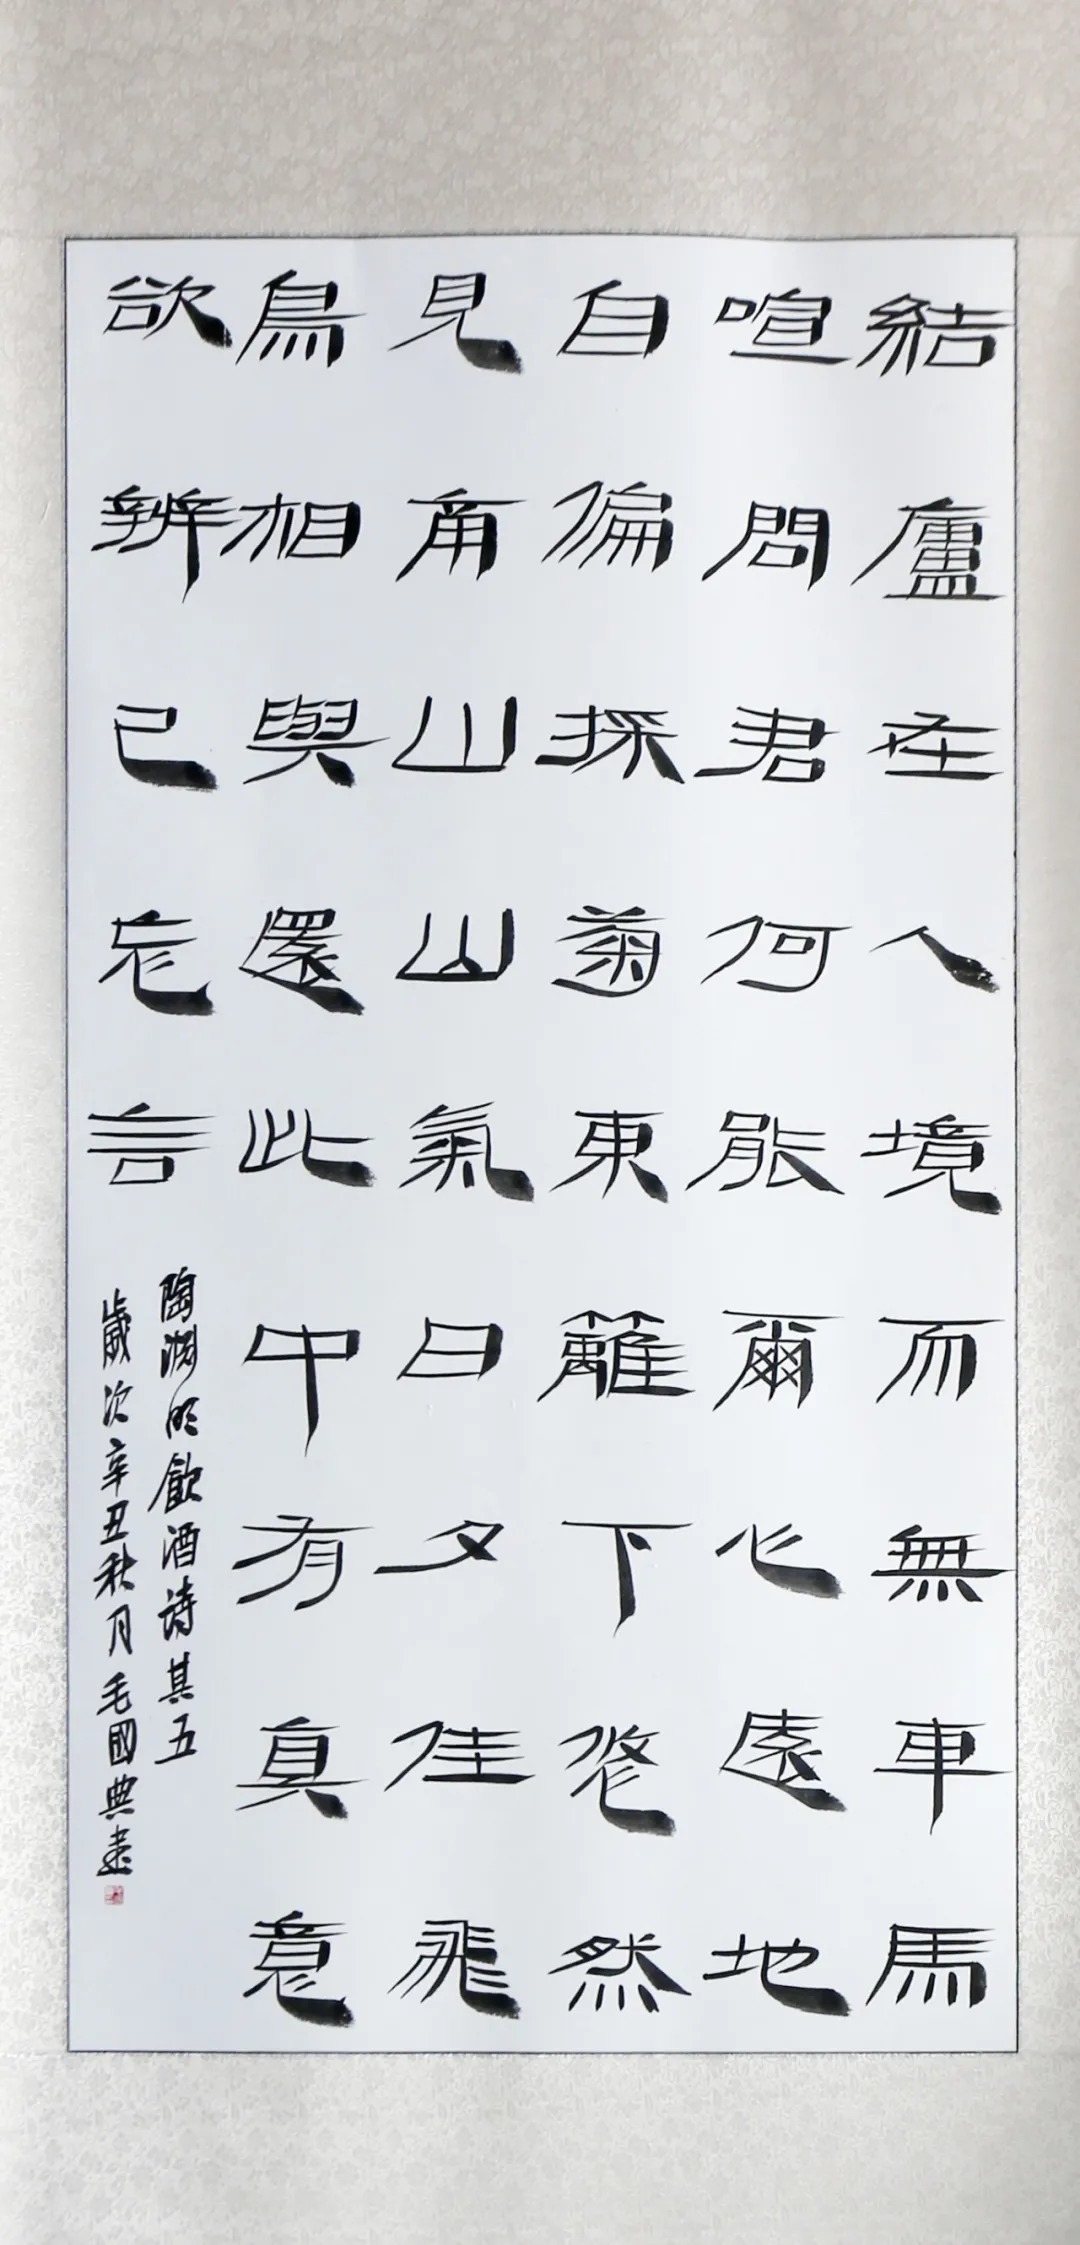 結廬在人境而無車馬
喧問君何能爾心遠地
自偏採菊東籬下悠然
見南山山氣日夕佳飛
鳥相與還此中有真意
欲辨已忘言
陶淵明飲酒詩其五
歲次辛丑秋月毛國典書